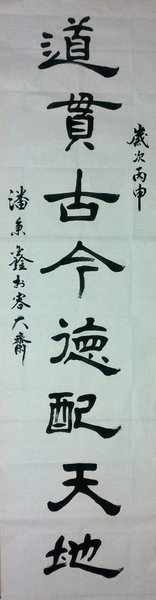 歲次丙申
道貫古今德配天地
潘秉鑫书於容大齋